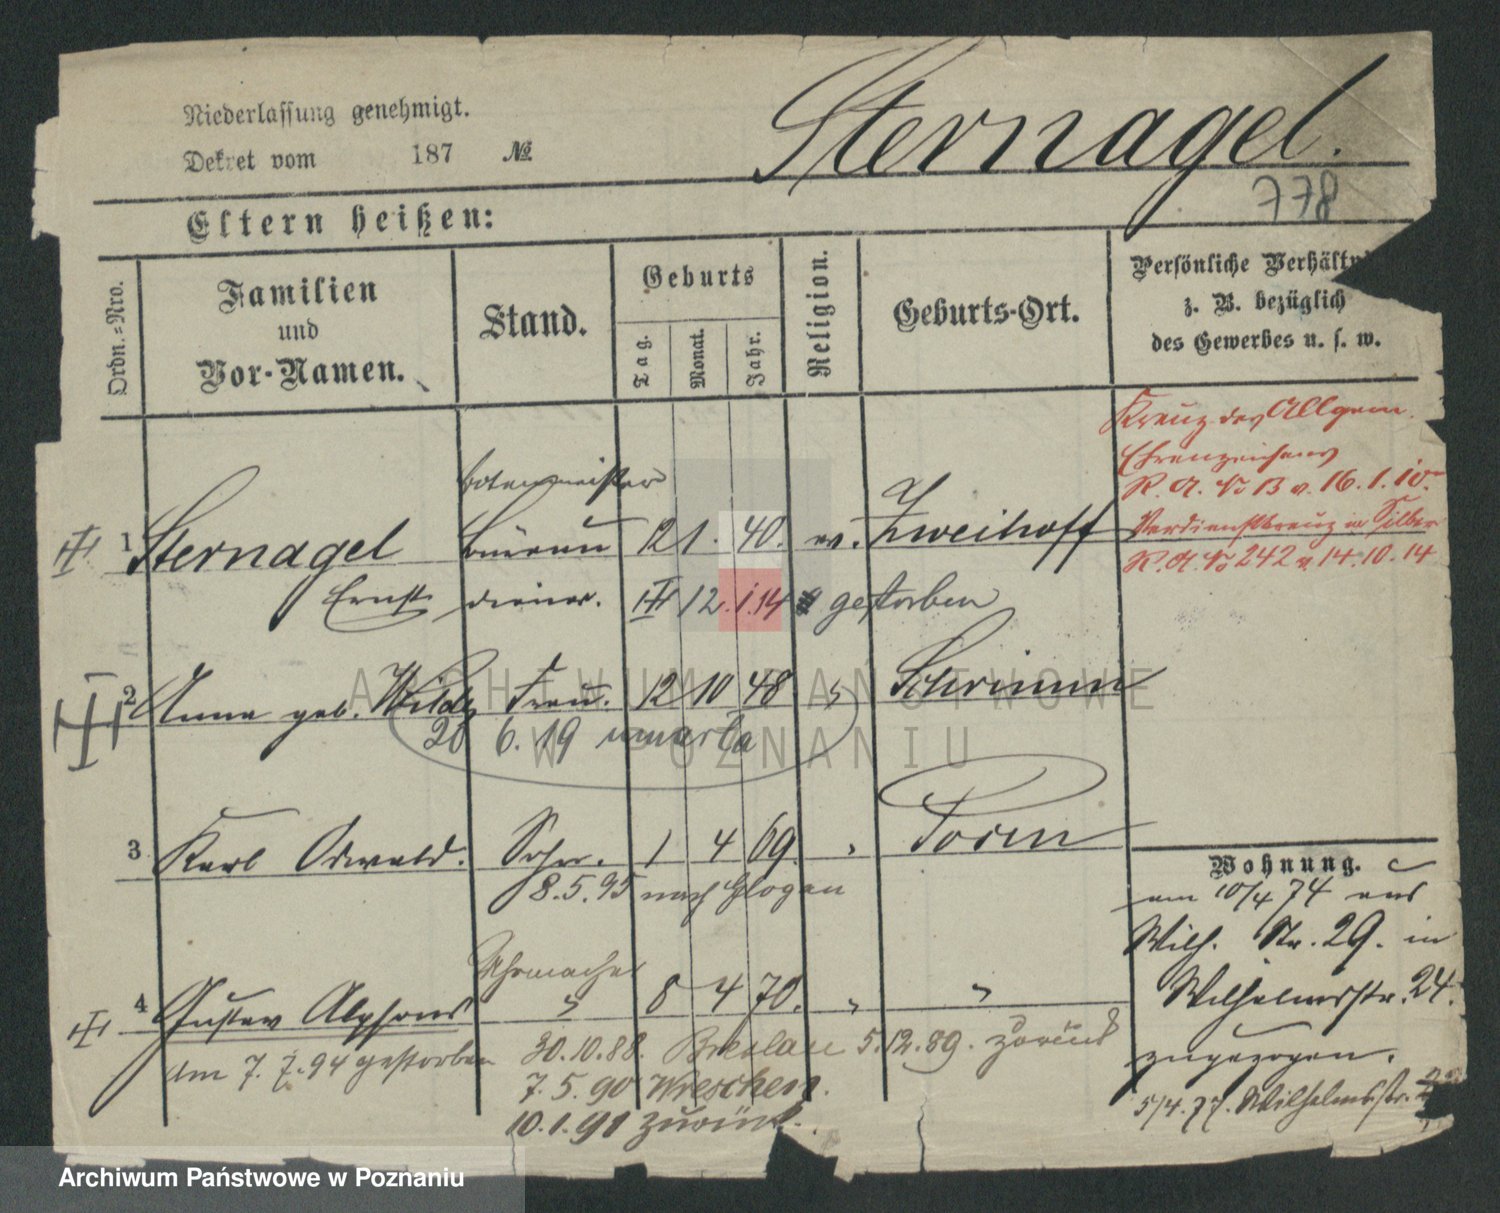 Niederlassung genehmigt.
Dekret vom 187 №
Sternagel.
778
Eltern heißen:
Ordn.=Nro.
Familien
und
Vor-Namen.
Stand.
Geburts
Tag.
Monat.
Jahr.
Religion.
Geburts-Ort.
Persönliche Verhältni
z. B. bezüglich
des Gewerbes u. s. w.
Kreuz des Allgem.
Ehrenzeichens
K. A. No 13 v. 16.1.10.
Verdienstkreuz in Silber
K. A. No 242 v. 14.10.14
Botenmeister
1 Sternagel Bureau 12 1. 40. ev. Zweihoff
Ernst diener. 12.1.14 gestorben
2 Anna geb. Wilde Frau. 12 10 48 " Schrimm
26 6. 19 umarła
3 Karl Oswald. Sohn. 1 4 69. " Posen
8.5.95 nach Glogau
Uhrmacher
4 Gustav Alphons " 8 4 70. " "
am 7.7.94 gestorben
30.10.88. Breslau 5.12.89. zurück
7.5.90 Wreschen.
10.1.91 zurück.
Wohnung.
am 10/4 74 aus
Wilh. Str. 29. in
Wilhelmsstr. 24.
zugezogen.
5/4.77. Wilhelmsstr.
ARCHIWUM PAŃSTWOWE
W POZNANIU
Archiwum Państwowe w Poznaniu